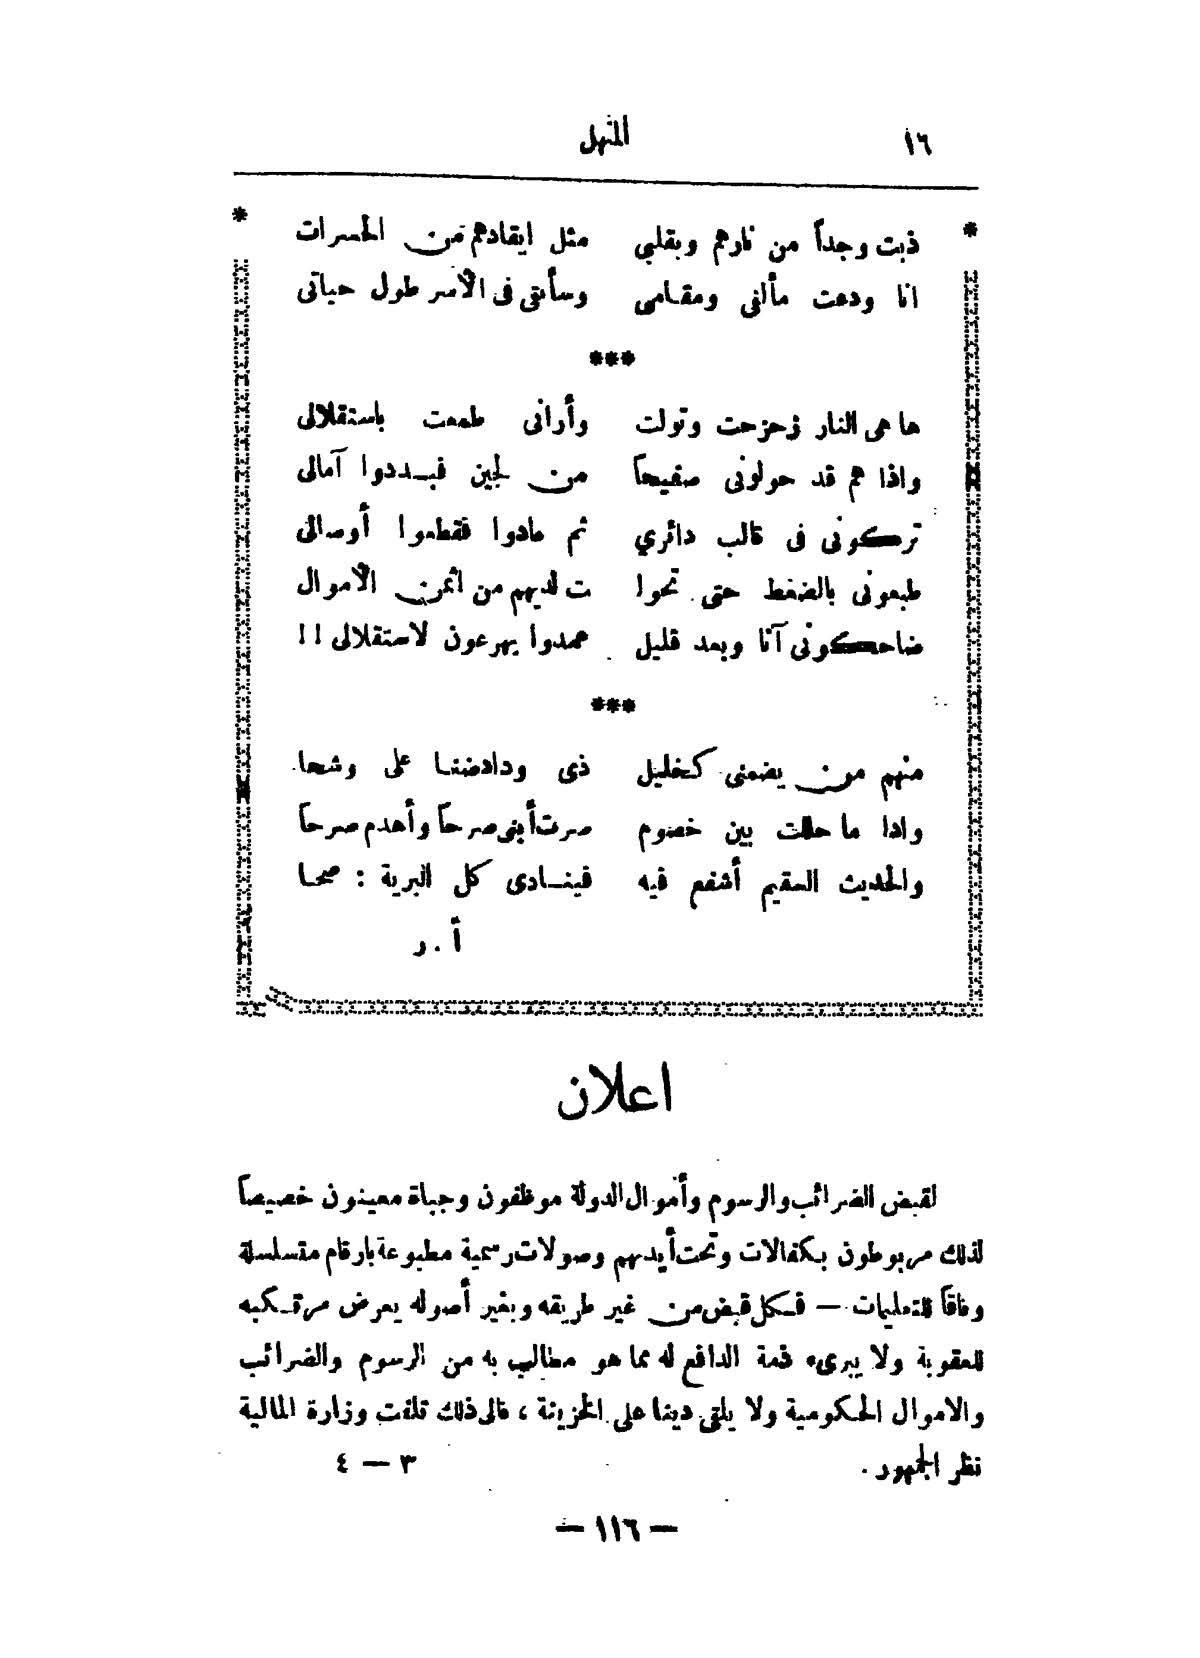 ١٦
المنهل
ذبت وجداً من نارهم وبقلبي مثل ايقادهم من الحسرات
انا ودعت مألفى ومقامى وسأبقى فى الأسر طول حياتى
***
ها هى النار زحزحت وتولت وأرانى طمعت باستقلالى
واذا هم قد حولونى صفيحاً من لجين فبددوا آمالى
تركونى فى قالب دائري ثم عادوا فقطعوا أوصالى
طبعونى بالضغط حتى تحوا ت لديهم من اثمن الأموال
ضاحكونى آنا وبعد قليل عمدوا يهرعون لاستقلالى !!
***
منهم من يضمنى كخليل ذى ودادضننا على وشحا
واذا ما حللت بين خصوم صرت أبنى صرحاً وأهدم صرحاً
والحديث العقيم أشفع فيه فينادى كل البرية : صحا
أ . ر
اعلان
لقبض الضرائب والرسوم وأموال الدولة موظفون وجباة معينون خصيصاً
لذلك مربوطون بكفالات وتحت أيديهم وصولات رسمية مطبوعة بارقام متسلسلة
وفاقاً للتعليمات — فكل قبض من غير طريقه وبغير أصوله يعرض مرتكبه
للعقوبة ولا يبرىء ذمة الدافع له مما هو مطالب به من الرسوم والضرائب
والاموال الحكومية ولا يلقى دينا على الخزينة ، فالى ذلك تلفت وزارة المالية
نظر الجمهور . ٣ — ٤
— ١١٦ —